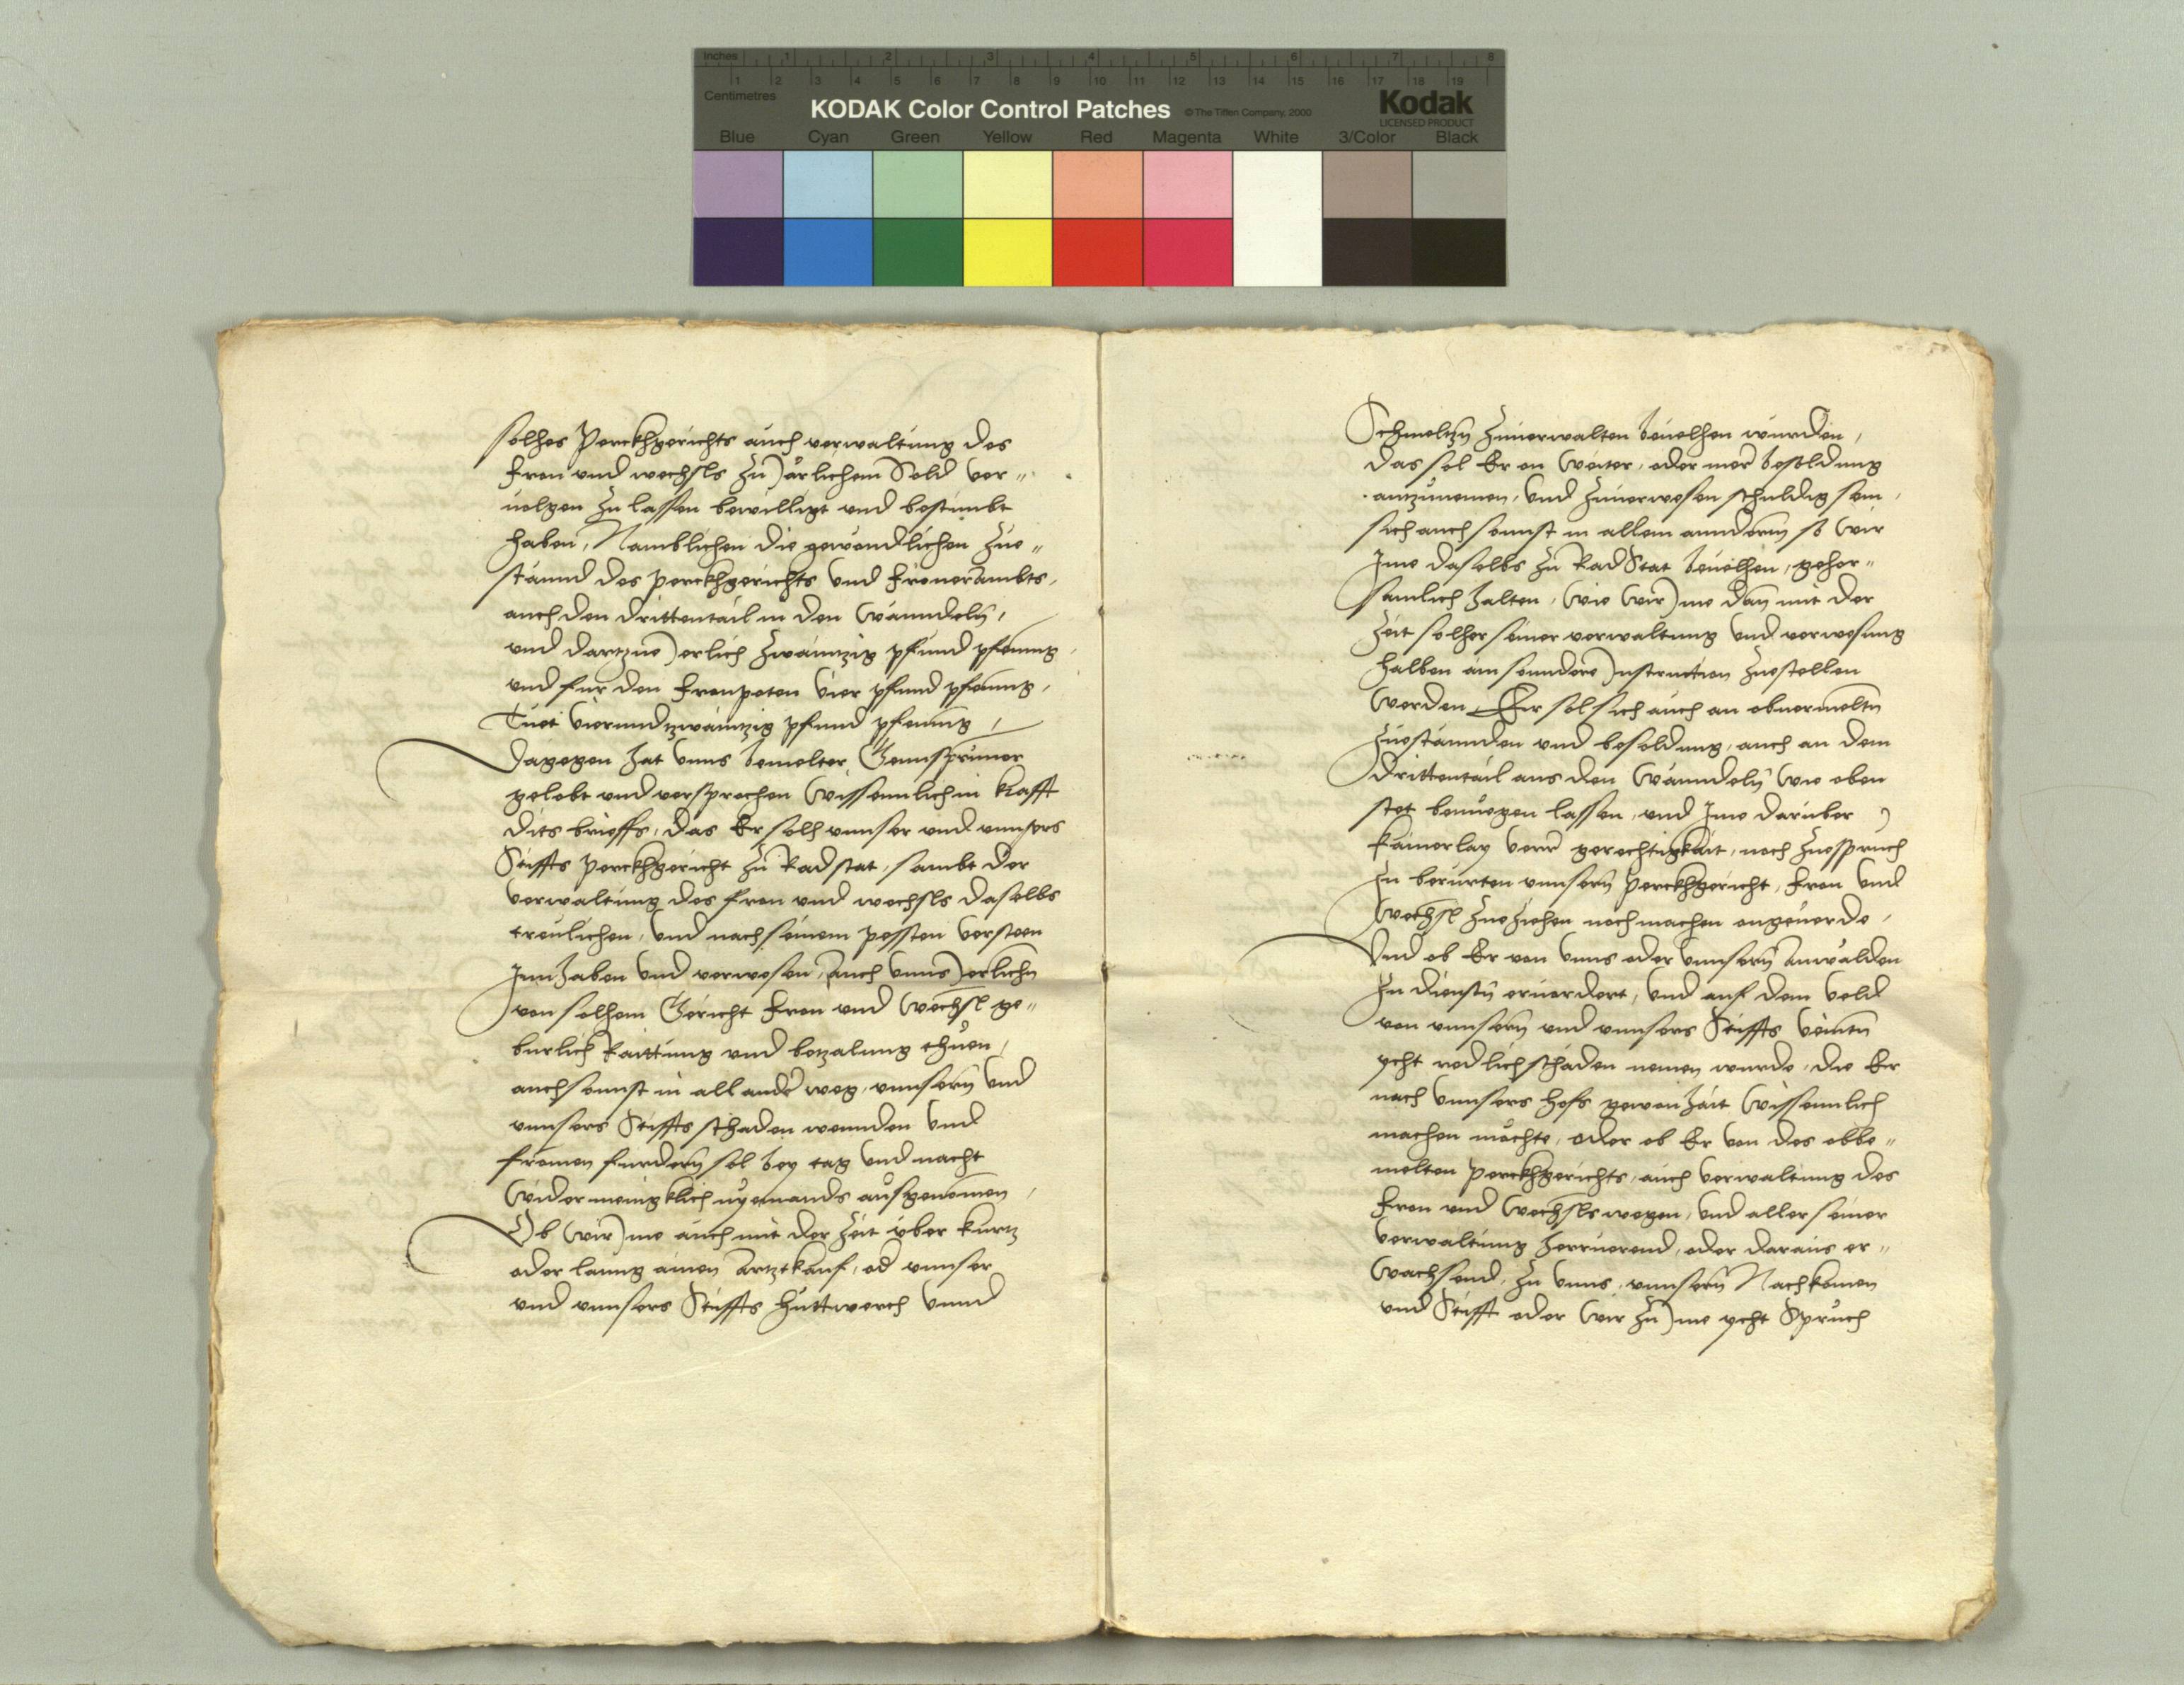 Inches 1 2 3 4 5 6 7 8
1 2 3 4 5 6 7 8 9 10 11 12 13 14 15 16 17 18 19
Centimetres
KODAK Color Control Patches © The Tiffen Company, 2000 Kodak
LICENSED PRODUCT
Blue Cyan Green Yellow Red Magenta White 3/Color Black
solhes Perckhgerichts auch verwaltung des
Fron und wechsls zu Järlichem Sold ver„
uolgen zu lassen bewilligt und bestimbt
haben, Namblichen die gewondlichen Zue„
stännd des perckhgerichts und Froneramabts,
auch den drittentail in den Wänndeln,
und dartzue Jerlich Zwaintzig pfund pfening,
und für den Fronpoten vier pfund pfening,
Tuet vierundtzwaintzig pfund pfening,
Dagegen hat unns bemelter
gelobt und versprochen Wissennlich in krafft
dits brieffs, das Er solh unnser und unnsers
Stiffts perckhgericht zu Radstat, sambt der
verwaltung des fron und wechsls daselbs
treulichen, und nach seinem pessten versteen
Innhaben und verwesen, auch unns Jerlichn
von solhem Gericht Fron und Wechsl ge„
burlich Raittung und betzalung thuen,
auch sonnst in all ander weg, unnsern und
unnsers Stiffts schaden wennden und
fromen furdern sol bey tag und nacht
Wider menigklich nyemands ausgenomen,
Ob Wir Ime auch mit der Zeit über kurtz
oder lanng ainen Artztkauf, od unnser
und unnsers Stiffts hüttwerch unnd
Schmeltzn zuuerwalten beuelhen wurden,
das sol Er on Weiter, oder mer besoldung
antzunemen, und zuuerwesen schuldig sein,
sich auch sonnst in allem anndern so Wir
Ime daselbs zu RadStat beuelhen, gehor„
samlich halten, Wie Wir Ime dan mit der
Zeit solher seiner verwaltung und verwesung
halben ain sonndere Instruction zuestellen
Werden, Er sol sich auch an obuermeltn
Zuestännden und besoldung, auch an dem
drittentail aus den Wänndeln wie oben
stet benuegen lassen, und Ime darüber
kainerlay verrer gerechtigkait, noch zuespruch
Zu berürten unnsern perckhgericht, Fron und
Wechsl zueziehen noch machen ongeuerde,
Und ob Er von unns oder unnsern Anwälden
Zu dienstn eruordert, und auf dem veld
von unnsern und unnsers Stiffts veintn
ycht redlich schaden nemen wurde, die Er
nach unnsers hofs gewonhait Wissennlich
machen möchte, oder ob Er von des obbe„
melten perckhgerichts, auch verwaltung des
Fron und Wechsls wegen, und aller seiner
verwaltung herruerend, oder daraus er„
Wachsend, zu unns, unnsern Nachkomen
und Stifft oder Wir zu Ime ycht Spruch